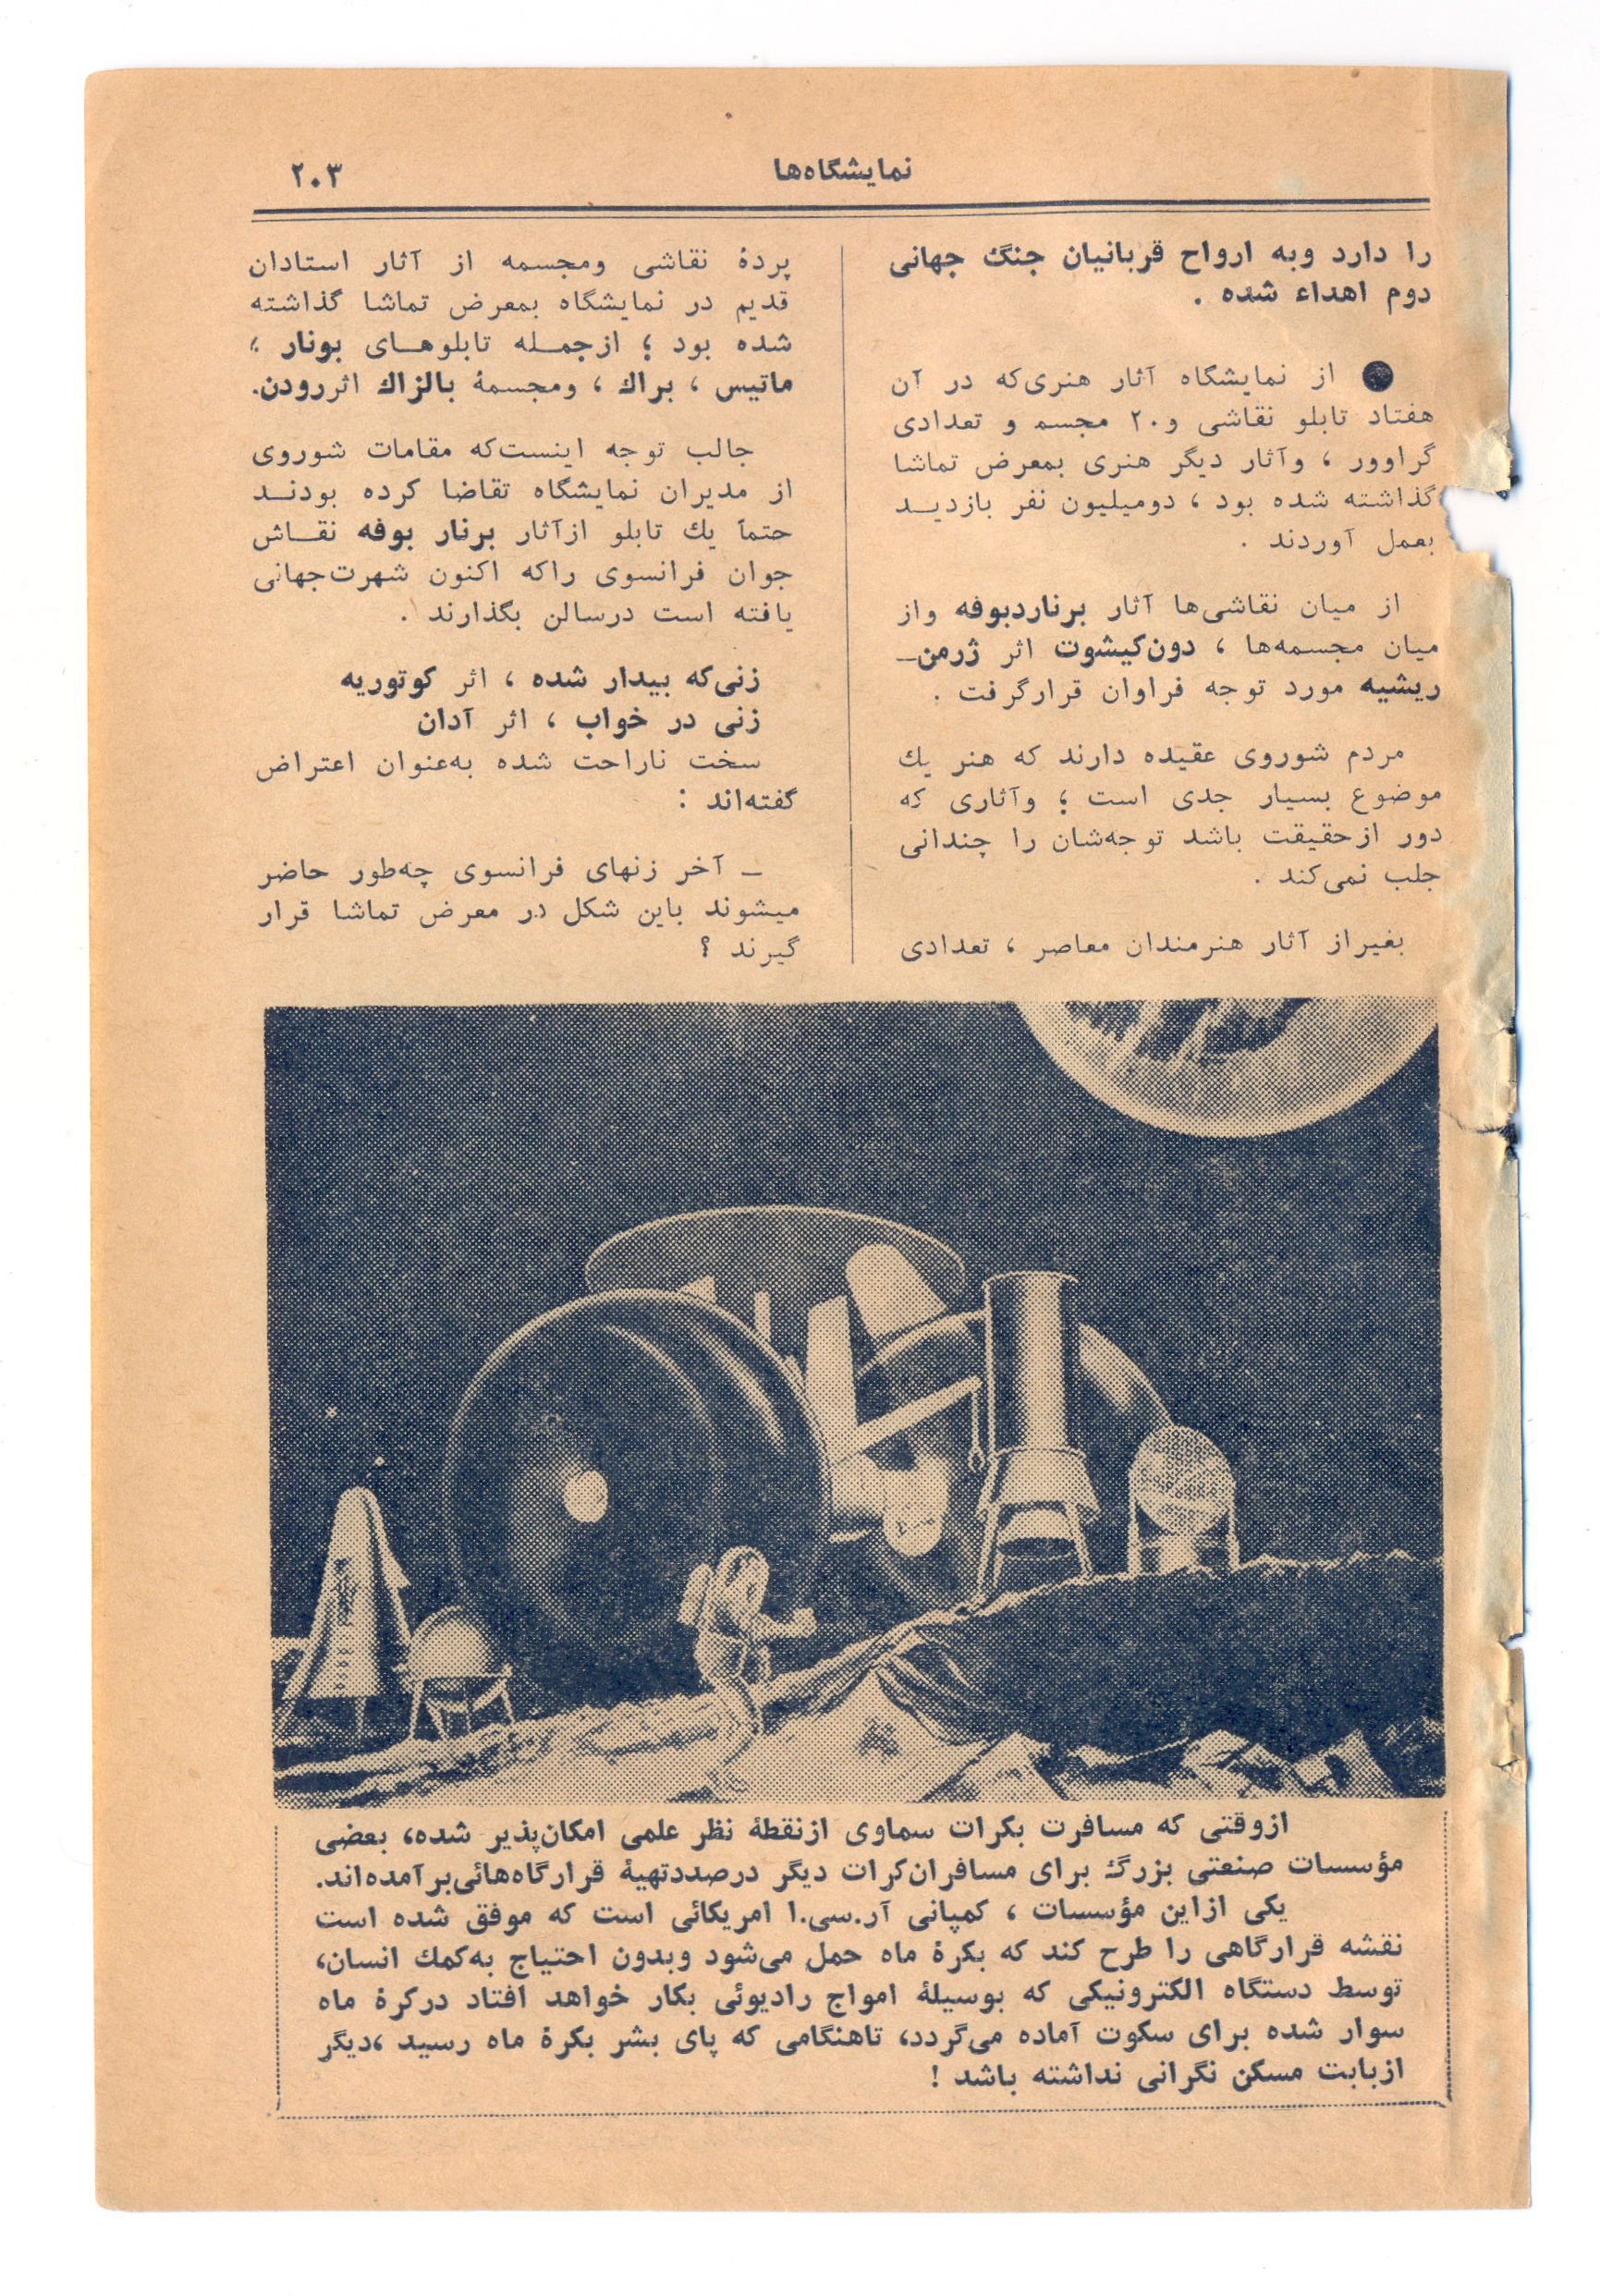 نمایشگاه‌ها
۲۰۳
را دارد وبه ارواح قربانیان جنگ جهانی
دوم اهداء شده .
● از نمایشگاه آثار هنری‌که در آن
هفتاد تابلو نقاشی و۲۰ مجسمه و تعدادی
گراوور ، وآثار دیگر هنری بمعرض تماشا
گذاشته شده بود ، دومیلیون نفر بازدیـد
بعمل آوردند .
از میان نقاشی‌ها آثار برناردبوفه واز
میان مجسمه‌ها ، دون‌کیشوت اثر ژرمن_
ریشیه مورد توجه فراوان قرارگرفت .
مردم شوروی عقیده دارند که هنر یك
موضوع بسیار جدی است ؛ وآثاری که
دور ازحقیقت باشد توجه‌شان را چندانی
جلب نمی‌کند .
بغیراز آثار هنرمندان معاصر ، تعدادی
پردهٔ نقاشی ومجسمه از آثار استادان
قدیم در نمایشگاه بمعرض تماشا گذاشته
شده بود ؛ ازجمـله تابلوهـای بونار ،
ماتیس ، براك ، ومجسمهٔ بالزاك اثررودن.
جالب توجه اینست‌که مقامات شوروی
از مدیران نمایشگاه تقاضا کرده بودنـد
حتماً یك تابلو ازآثار برنار بوفه نقـاش
جوان فرانسوی راکه اکنون شهرت‌جهانی
یافته است درسالن بگذارند .
زنی‌که بیدار شده ، اثر کوتوریه
زنی در خواب ، اثر آدان
سخت ناراحت شده به‌عنوان اعتراض
گفته‌اند :
_ آخر زنهای فرانسوی چه‌طور حاضر
میشوند باین شکل در معرض تماشا قرار
گیرند ؟
ازوقتی که مسافرت بکرات سماوی ازنقطهٔ نظر علمی امکان‌پذیر شده، بعضی
مؤسسات صنعتی بزرگ برای مسافران‌کرات دیگر درصددتهیهٔ قرارگاه‌هائی‌برآمده‌اند.
یکی ازاین مؤسسات ، کمپانی آر.سی.ا امریکائی است که موفق شده است
نقشه قرارگاهی را طرح کند که بکرهٔ ماه حمل می‌شود وبدون احتیاج به‌کمك انسان،
توسط دستگاه الکترونیکی که بوسیلهٔ امواج رادیوئی بکار خواهد افتاد درکرهٔ ماه
سوار شده برای سکوت آماده می‌گردد، تاهنگامی که پای بشر بکرهٔ ماه رسید ،دیگر
ازبابت مسکن نگرانی نداشته باشد !